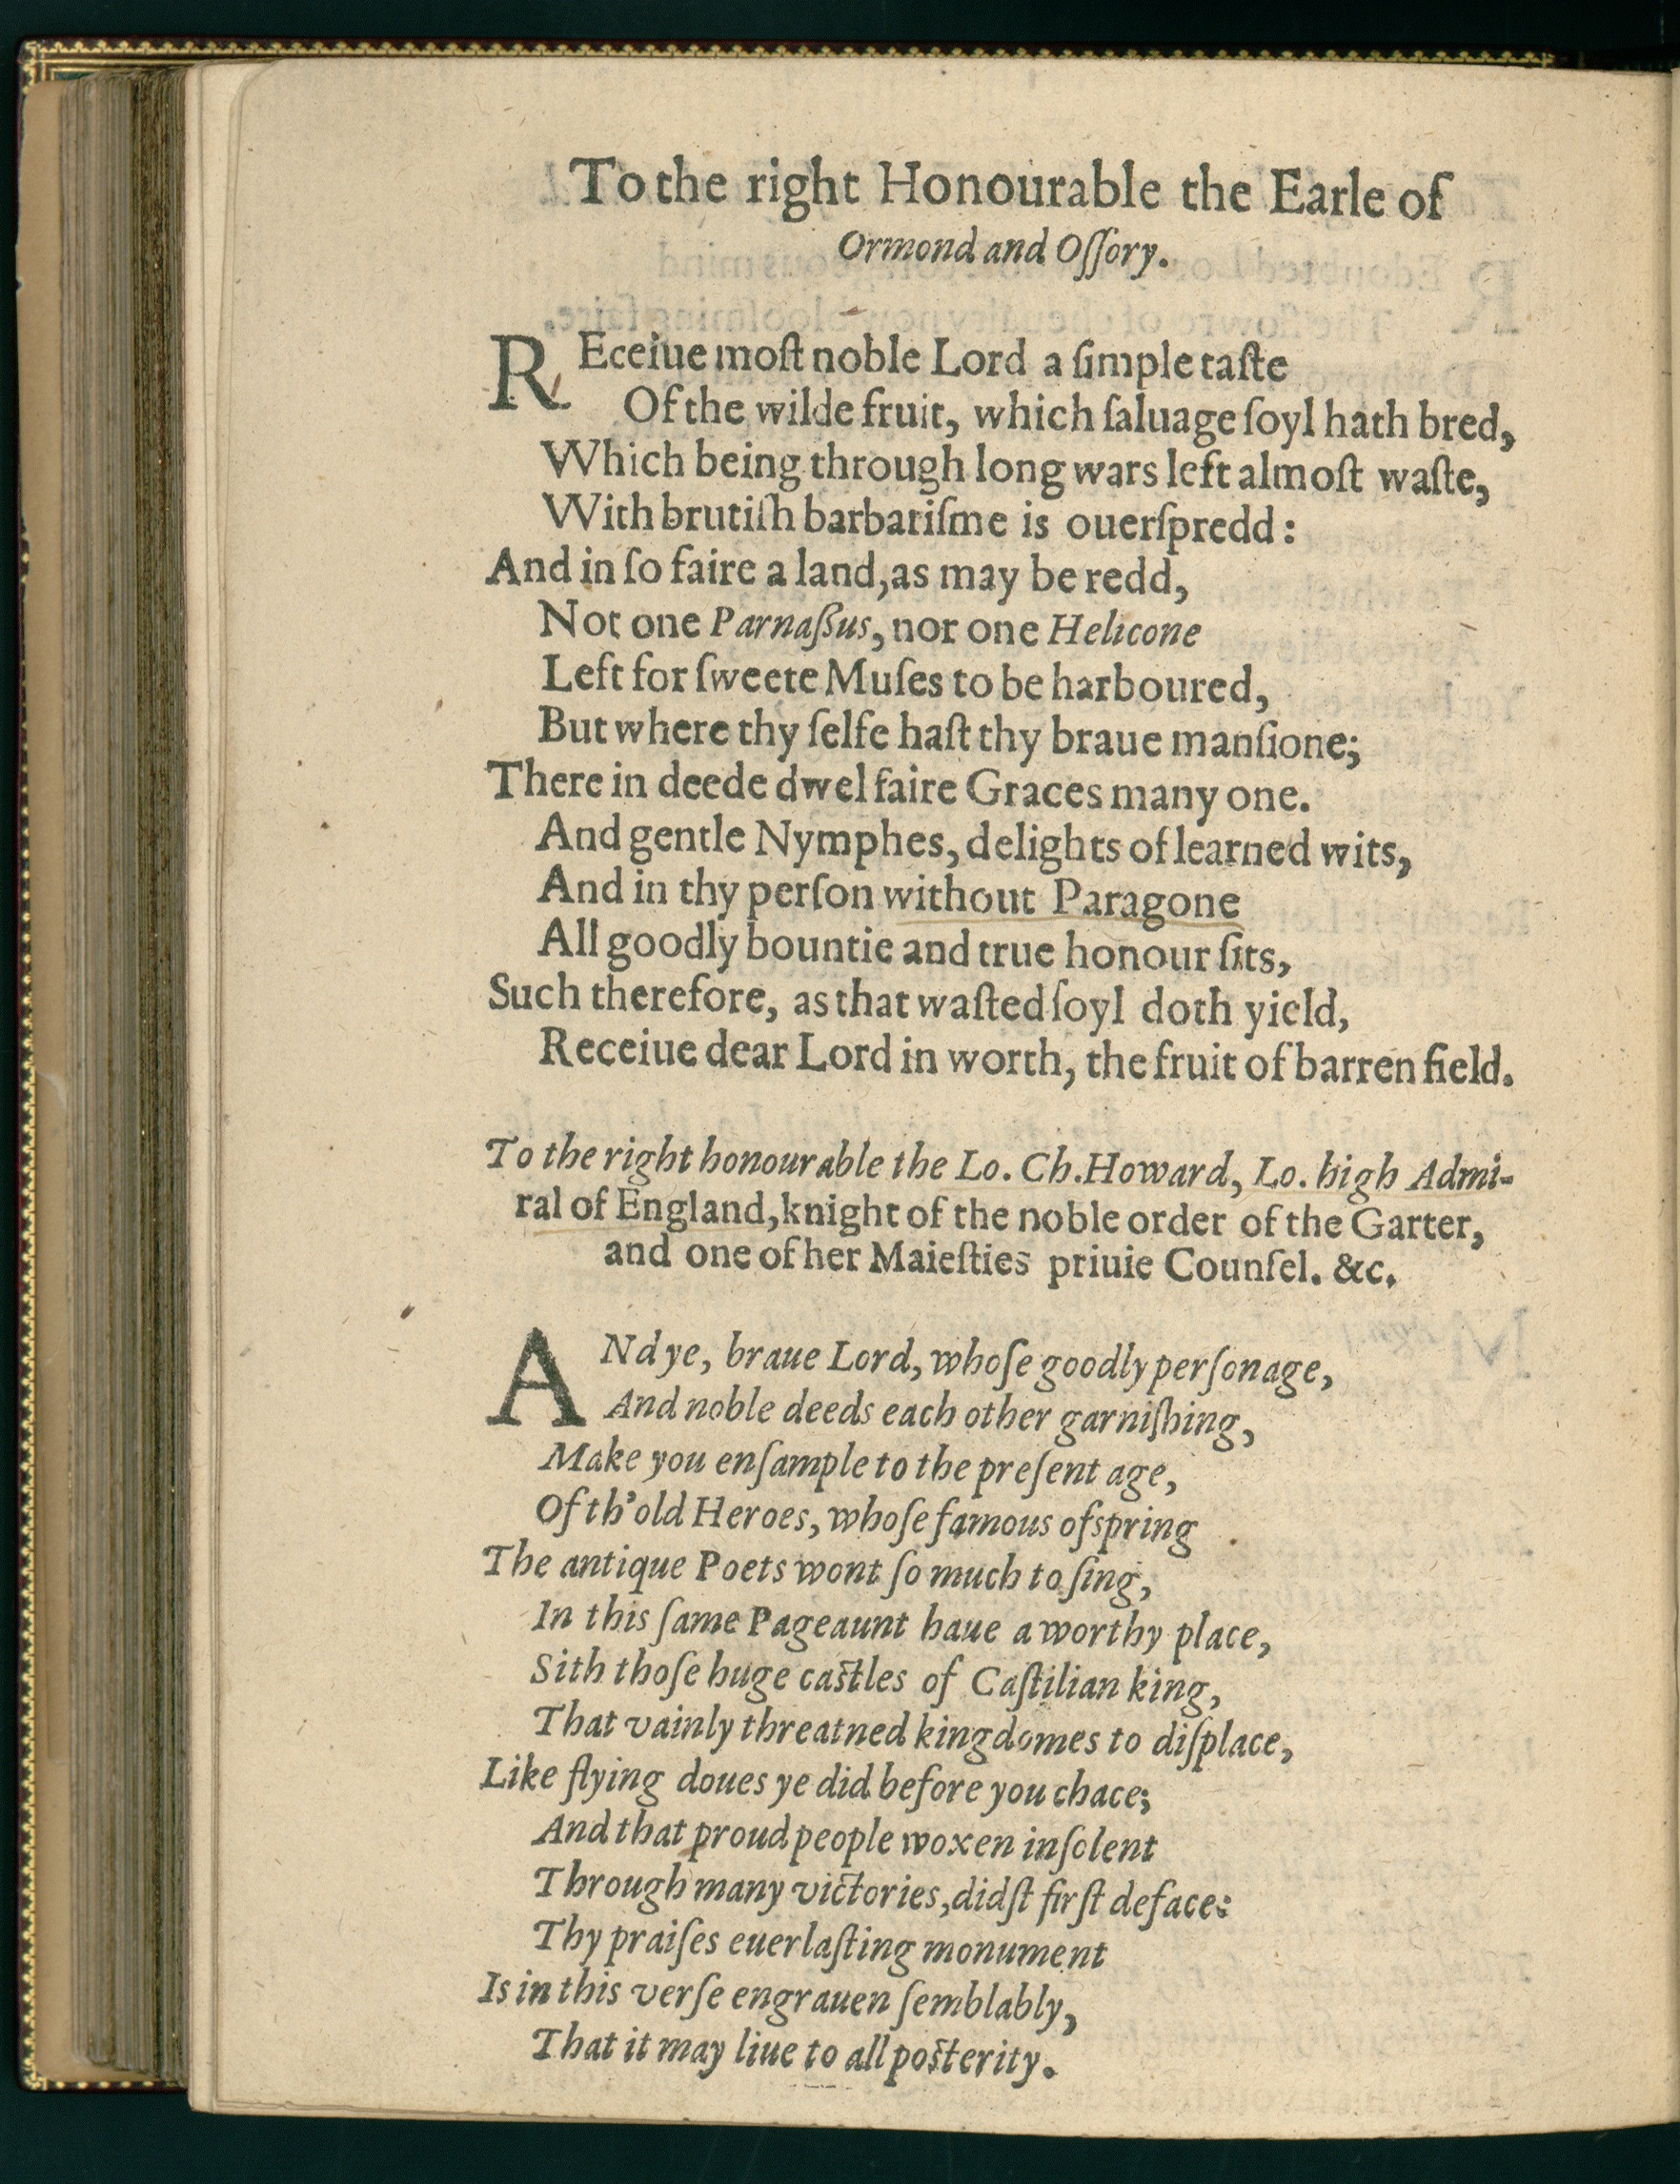 To the right Honourable the Earle of
Ormond and Oſſory.
REceiue moſt noble Lord a ſimple taſte
Of the wilde fruit, which ſaluage ſoyl hath bred,
Which being through long wars left almoſt waſte,
With brutiſh barbariſme is ouerſpredd:
And in ſo faire a land, as may be redd,
Not one Parnaßus, nor one Helicone
Left for ſweete Muſes to be harboured,
But where thy ſelfe haſt thy braue manſione;
There in deede dwel faire Graces many one.
And gentle Nymphes, delights of learned wits,
And in thy perſon without Paragone
All goodly bountie and true honour ſits,
Such therefore, as that waſted ſoyl doth yield,
Receiue dear Lord in worth, the fruit of barren field.
To the right honourable the Lo. Ch. Howard, Lo. high Admi-
ral of England, knight of the noble order of the Garter,
and one of her Maieſties priuie Counſel. &c.
ANd ye, braue Lord, whoſe goodly perſonage,
And noble deeds each other garniſhing,
Make you enſample to the preſent age,
Of th'old Heroes, whoſe famous ofspring
The antique Poets wont ſo much to ſing,
In this ſame Pageaunt haue a worthy place,
Sith thoſe huge castles of Caſtilian king,
That vainly threatned kingdomes to diſplace,
Like flying doues ye did before you chace;
And that proud people woxen inſolent
Through many victories, didſt firſt deface:
Thy praiſes euerlaſting monument
Is in this verſe engrauen ſemblably,
That it may liue to all posterity.